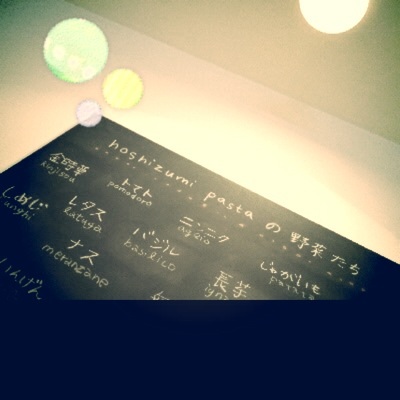 hoshizumi pasta の 野菜 たち
金時草
kinjisou
トマト
pomodoro
ニンニク
aglio
じゃがいも
patate
しめじ
レタス
lattuga
バジル
basilico
長芋
ナス
melanzane
いんげん